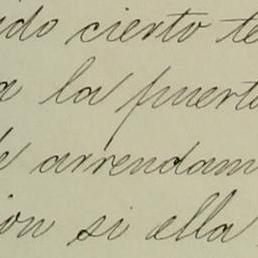 ido cierto te
a la puerto
e arrendam
ión si ella